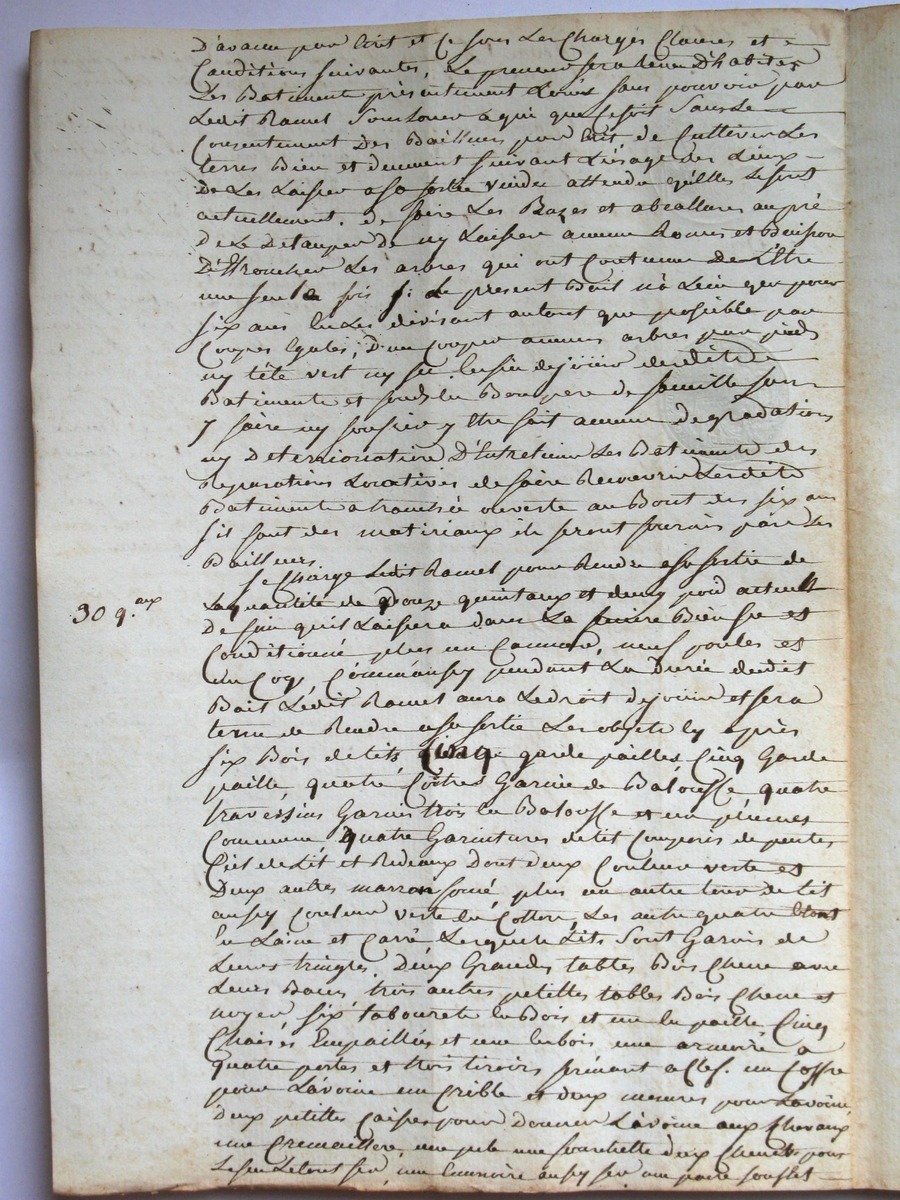 D'avance pour Coit et Ce sous Les Charges Clauses et
Conditions suivantes, Le preneur sera tenu D'habiter
Les Batiment présentement Loués sans pouvoir par
Ledit Ramel Souslouer a qui que Ce soit Sans Le
Consentement Des Bailleurs par de Cultiver Les
terres Bien et duement suivant L'ésage des Lieux
De Les Laisser a sa sortie vuides attendu qu'élles Le sont
actuellement. de faire Les Razes et abeallures au pré
De Le Detauper De ny Laisser aucune Ronces et Buisson
D'Ebrancher Les arbres qui ont Coutume De L'Etre
une seule fois si Le present Bail n'a Lieu que pour
six ans En Les divisant autant que possible par
Coupes Egales, D'en Couper aucuns arbres par pieds
ny tête vert ny sec Enfin de jouir desdits
Batiments et fonds En Bon pere de famille sans
y faire ny souffrir y Etre fait aucune degradations
ny Deterrioration D'Entretenir Les Batiments des
Reparations Locatives de faire Recouvrir Lesdits
Batiments a tranchée ouverte au Bout des six ans
s'il faut des matériaux ils seront fournis par Les
Bailleurs
Se Charge Ledit Ramel pour Rendre a sa sortie de
30 q.aux
La quantité de Douze quintaux et demy poid actuell
De foin qu'il Laissera dans La feniere Bien sec et
Conditionné plus un Canard, neuf poules et
un Coq, Comm'aussy pendant La Durée dudit
Bail Ledit Ramel aura Le droit de jouir et sera
tenu de Rendre a sa sortie Les objets Cy après
six Bois de lits Cinq garde pailles, Cinq Garde
paille, quatre Coitres Garnie de Balousse quatre
traversins Garnis trois En Balousse et un plumes
Commune Quatre Garnitures de lit Composés de pentes
Ciel de Lit et Rideaux Dont deux Couleur verte et
Deux autres marron foncé, plus un autre tour de Lit
aussy Couleur verte En Cotton, Les autre quatre étant
En Laine et Carré, Lesquels Lits Sont Garnis de
Leurs tringles. Deux Grandes tables Bois Chene avec
Leurs Bancs trois autres petites tables Bois Chene et
noyer six tabourets En Bois et un En paille, Cinq
Chaises Empaillées et une En bois une armoire a
quatre portes et trois tiroirs fermant a Clef. un Coffre
pour Lavoine un Crible et deux mesures pour Lavoine
Deux petites Caisses pour Donner Lavoine aux Chevaux
une Cremaillere, une pele une fourchette deux Chenets pour
Le feu Le tout fer, une aussy fer, une paire soufflet